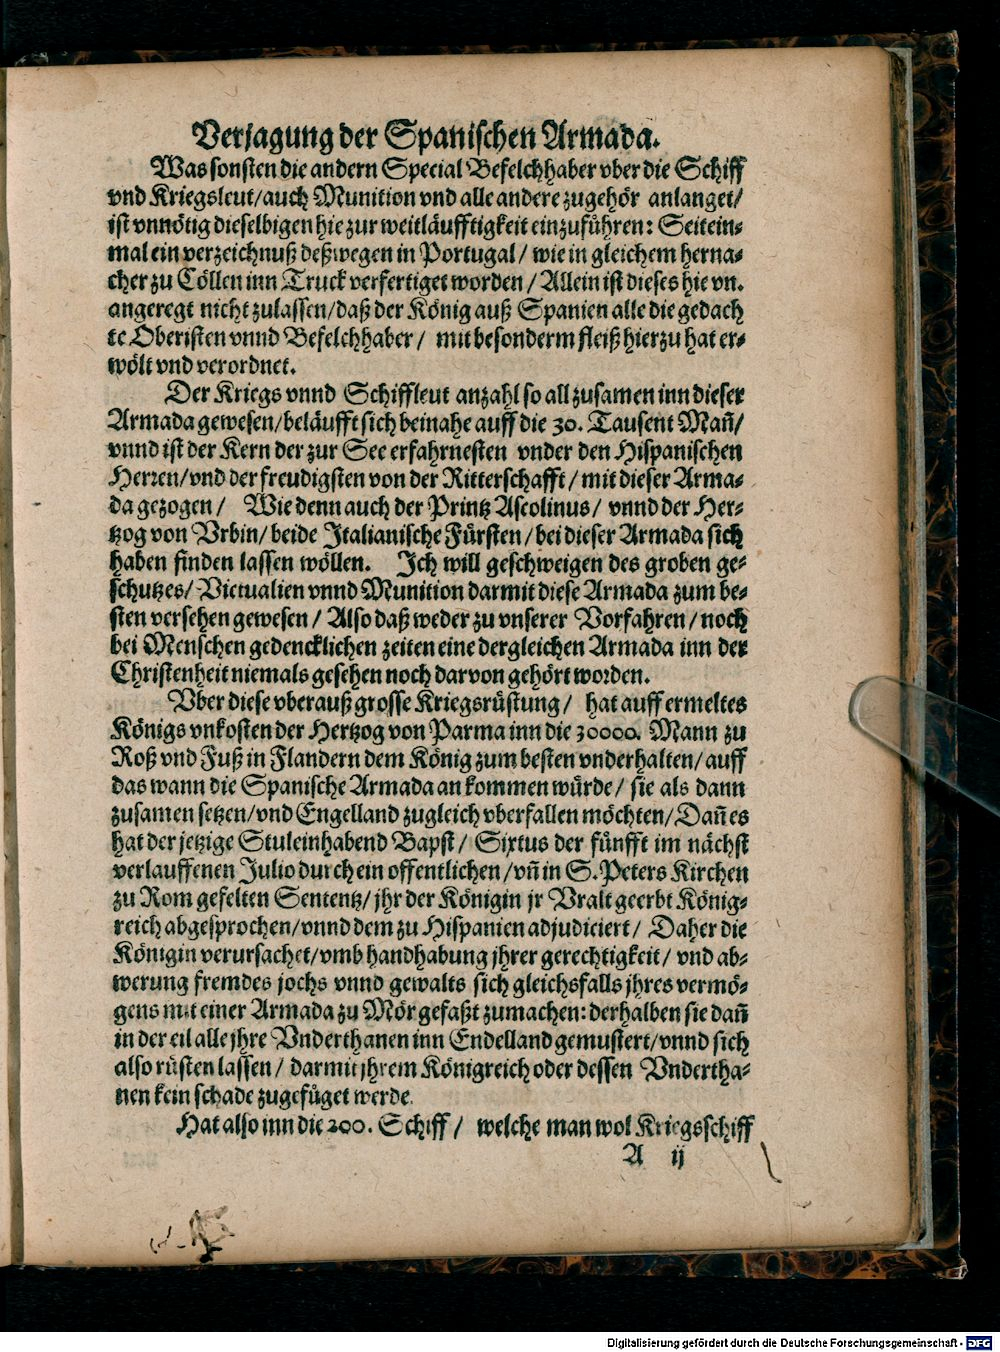 Verjagung der Spanischen Armada.
Was sonsten die andern Special Befelchhaber vber die Schiff
vnd Kriegsleut/auch Munition vnd alle andere zugehör anlanget/
ist vnnötig dieselbigen hie zur weitläufftigkeit einzuführen: Seitein⸗
mal ein verzeichnuß deßwegen in Portugal/ wie in gleichem herna⸗
cher zu Cöllen inn Truck verfertiget worden/ Allein ist dieses hie vn.
angeregt nicht zulassen/daß der König auß Spanien alle die gedach
te Oberisten vnnd Befelchhaber/ mit besonderm fleiß hierzu hat er⸗
wölt vnd verordnet.
Der Kriegs vnnd Schiffleut anzahl so all zusamen inn dieser
Armada gewesen/beläufft sich beinahe auff die 30. Tausent Mañ/
vnnd ist der Kern der zur See erfahrnesten vnder den Hispanischen
Herren/vnd der freudigsten von der Ritterschafft/ mit dieser Arma⸗
da gezogen/ Wie denn auch der Printz Ascolinus/ vnnd der Her⸗
tzog von Vrbin/ beide Italianische Fürsten/ bei dieser Armada sich
haben finden lassen wöllen. Ich will geschweigen des groben ge⸗
schutzes/ Victualien vnnd Munition darmit diese Armada zum be⸗
sten versehen gewesen/ Also daß weder zu vnserer Vorfahren/ noch
bei Menschen gedencklichen zeiten eine dergleichen Armada inn der
Christenheit niemals gesehen noch darvon gehört worden.
Vber diese vberauß grosse Kriegsrüstung/ hat auff ermeltes
Königs vnkosten der Hertzog von Parma inn die 30000. Mann zu
Roß vnd Fuß in Flandern dem König zum besten vnderhalten/ auff
das wann die Spanische Armada ankommen würde/ sie als dann
zusamen setzen/vnd Engelland zugleich vberfallen möchten/ Dañ es
hat der jetzige Stuleinhabend Bapst/ Sixtus der fünfft im nächst
verlauffenen Julio durch ein offentlichen/vñ in S. Peters Kirchen
zu Rom gefelten Sententz/ jhr der Königin jr Vralt geerbt König⸗
reich abgesprochen/vnnd dem zu Hispanien adjudiciert/ Daher die
Königin verursachet/vmb handhabung jhrer gerechtigkeit/ vnd ab⸗
werung fremdes jochs vnnd gewalts sich gleichsfalls jhres vermö⸗
gens mit einer Armada zu Mör gefaßt zumachen: derhalben sie dañ
in der eil alle jhre Vnderthanen inn Endelland gemustert/vnnd sich
also rüsten lassen/ darmit jhrem Königreich oder dessen Vndertha⸗
nen kein schade zugefüget werde.
Hat also inn die 200. Schiff/ welche man wol Kriegsschiff
A ij
Digitalisierung gefördert durch die Deutsche Forschungsgemeinschaft - DFG